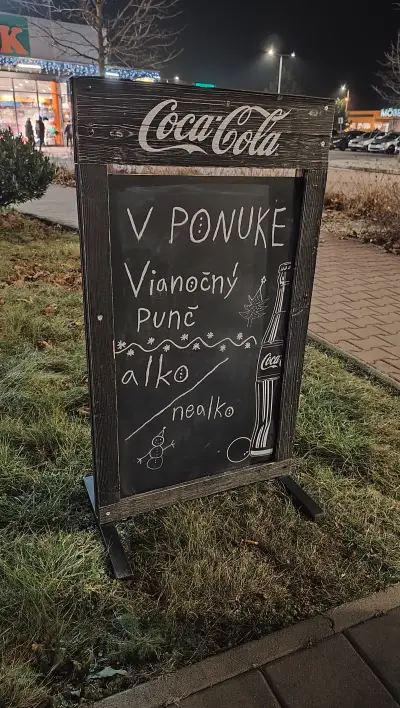 K
MÖBE
Coca-Cola
V PONUKE
Vianočný
punč
alko
nealko
Coca